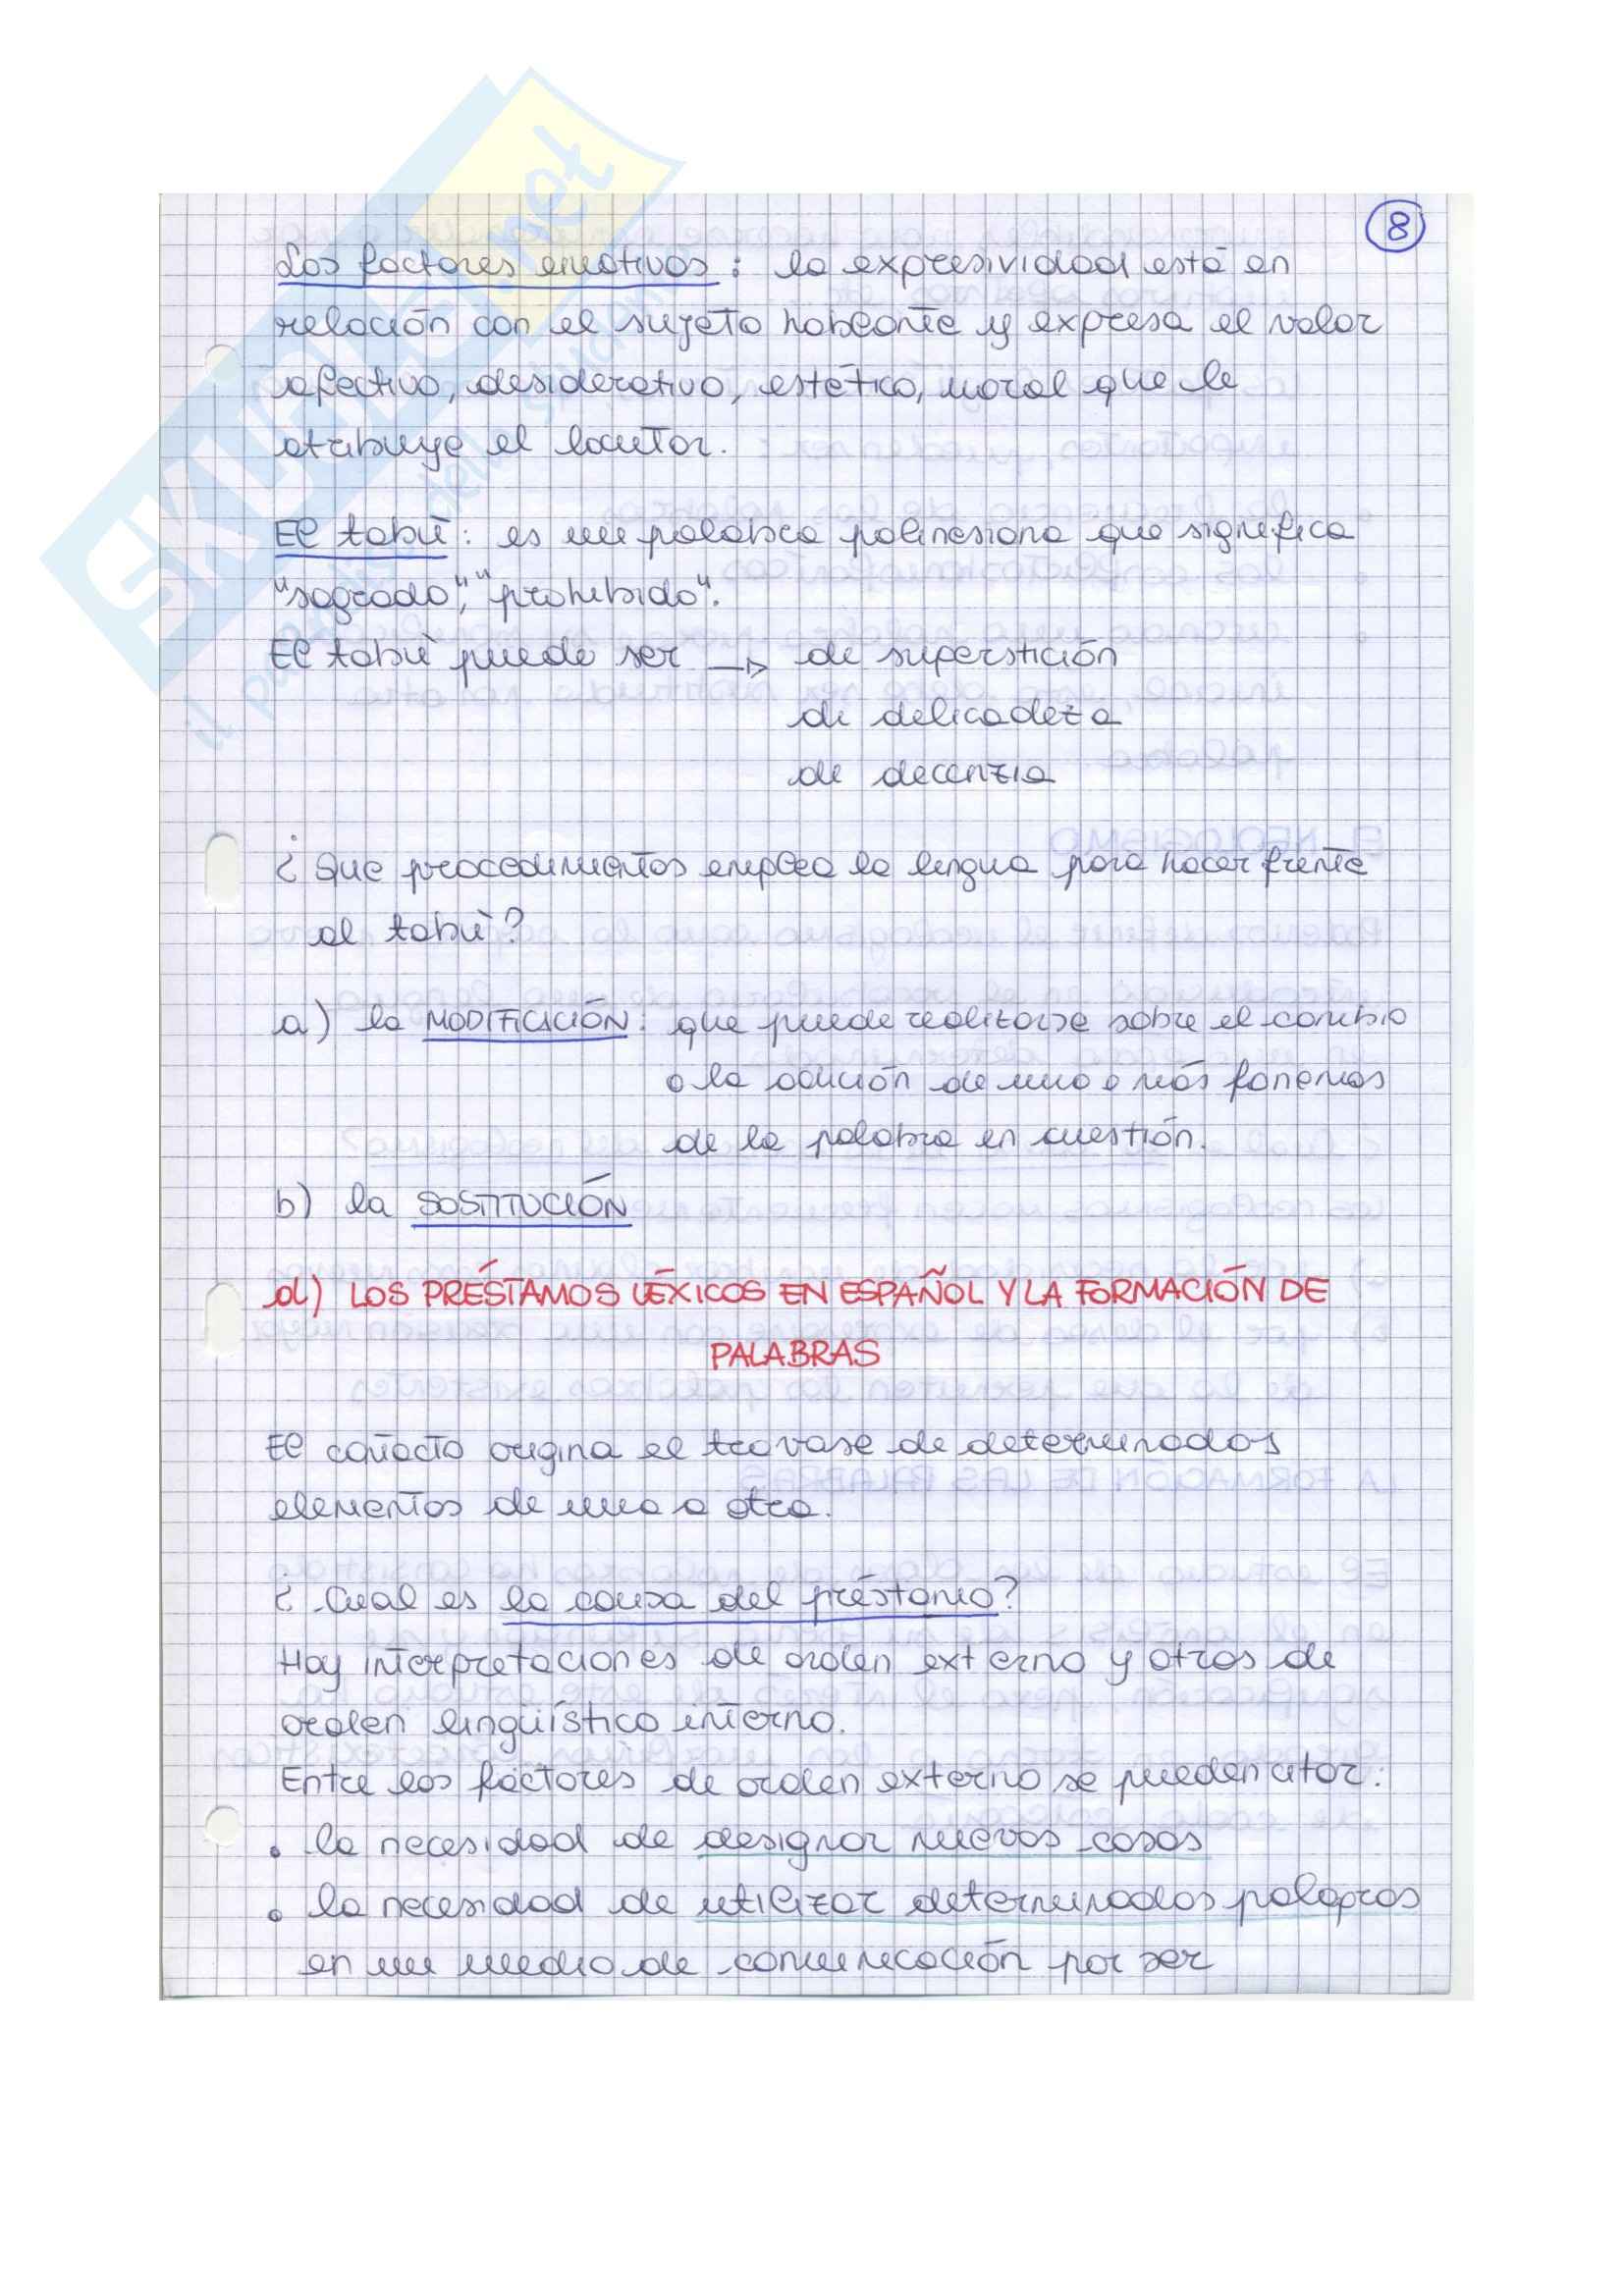 8
Los factores emotivos: la expresividad está en
relación con el sujeto hablante y expresa el valor
afectivo, desiderativo, estético, moral que le
atribuye el locutor.
El tabù: es un palabra polinesiana que significa
"sagrado", "prohibido".
El tabù puede ser → de superstición
de delicadeza
de decenzia
¿ Que procedimientos emplea la lengua para hacer frente
al tabù?
a) la MODIFICACIÓN: que puede realizarse sobre el cambio
o la adición de uno o más fonemas
de la palabra en cuestión.
b) la SOSTITUCIÓN
d) LOS PRÉSTAMOS LÉXICOS EN ESPAÑOL Y LA FORMACIÓN DE
PALABRAS
El contacto origina el travase de determinados
elementos de una a otra.
¿ Cual es la causa del préstamo?
Hay interpretaciones de orden externo y otros de
orden lingüístico interno.
Entre los factores de orden externo se pueden citar:
• la necesidad de designar nuevas cosas
• la necesidad de utilizar determinados palapras
en un medio de comunicación por ser
SKUOLA.net
il paradiso dello studente